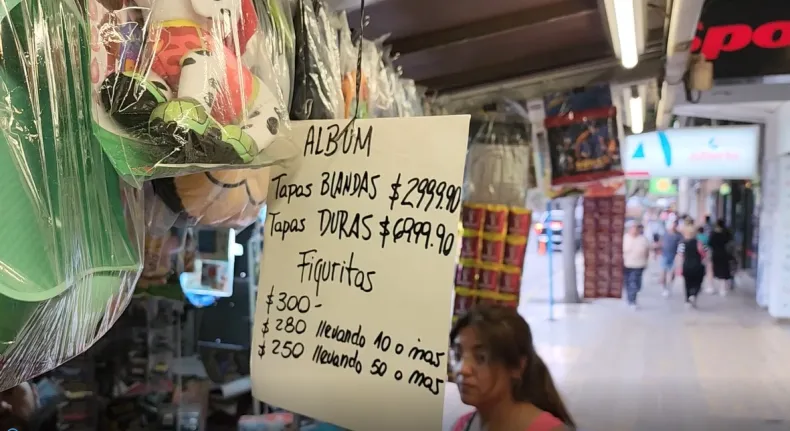 ALBUM
Tapas BLANDAS $2999.90
Tapas DURAS $6999.90
Figuritas
$300-
$280 llevando 10 o mas
$250 llevando 50 o mas